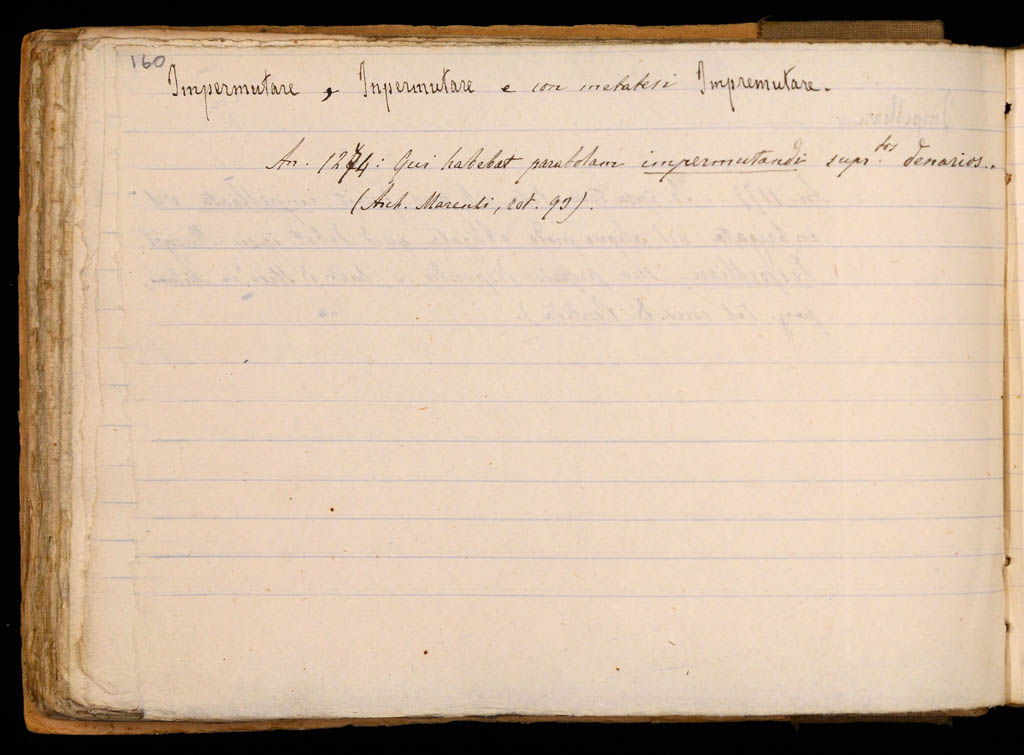 160
Impermutare, Inpermutare e con metatesi Impremutare.
An. 1274: Qui habebat parabolam impermutandi supr.tos denarios..
(Arch. Marensi, rot. 93).